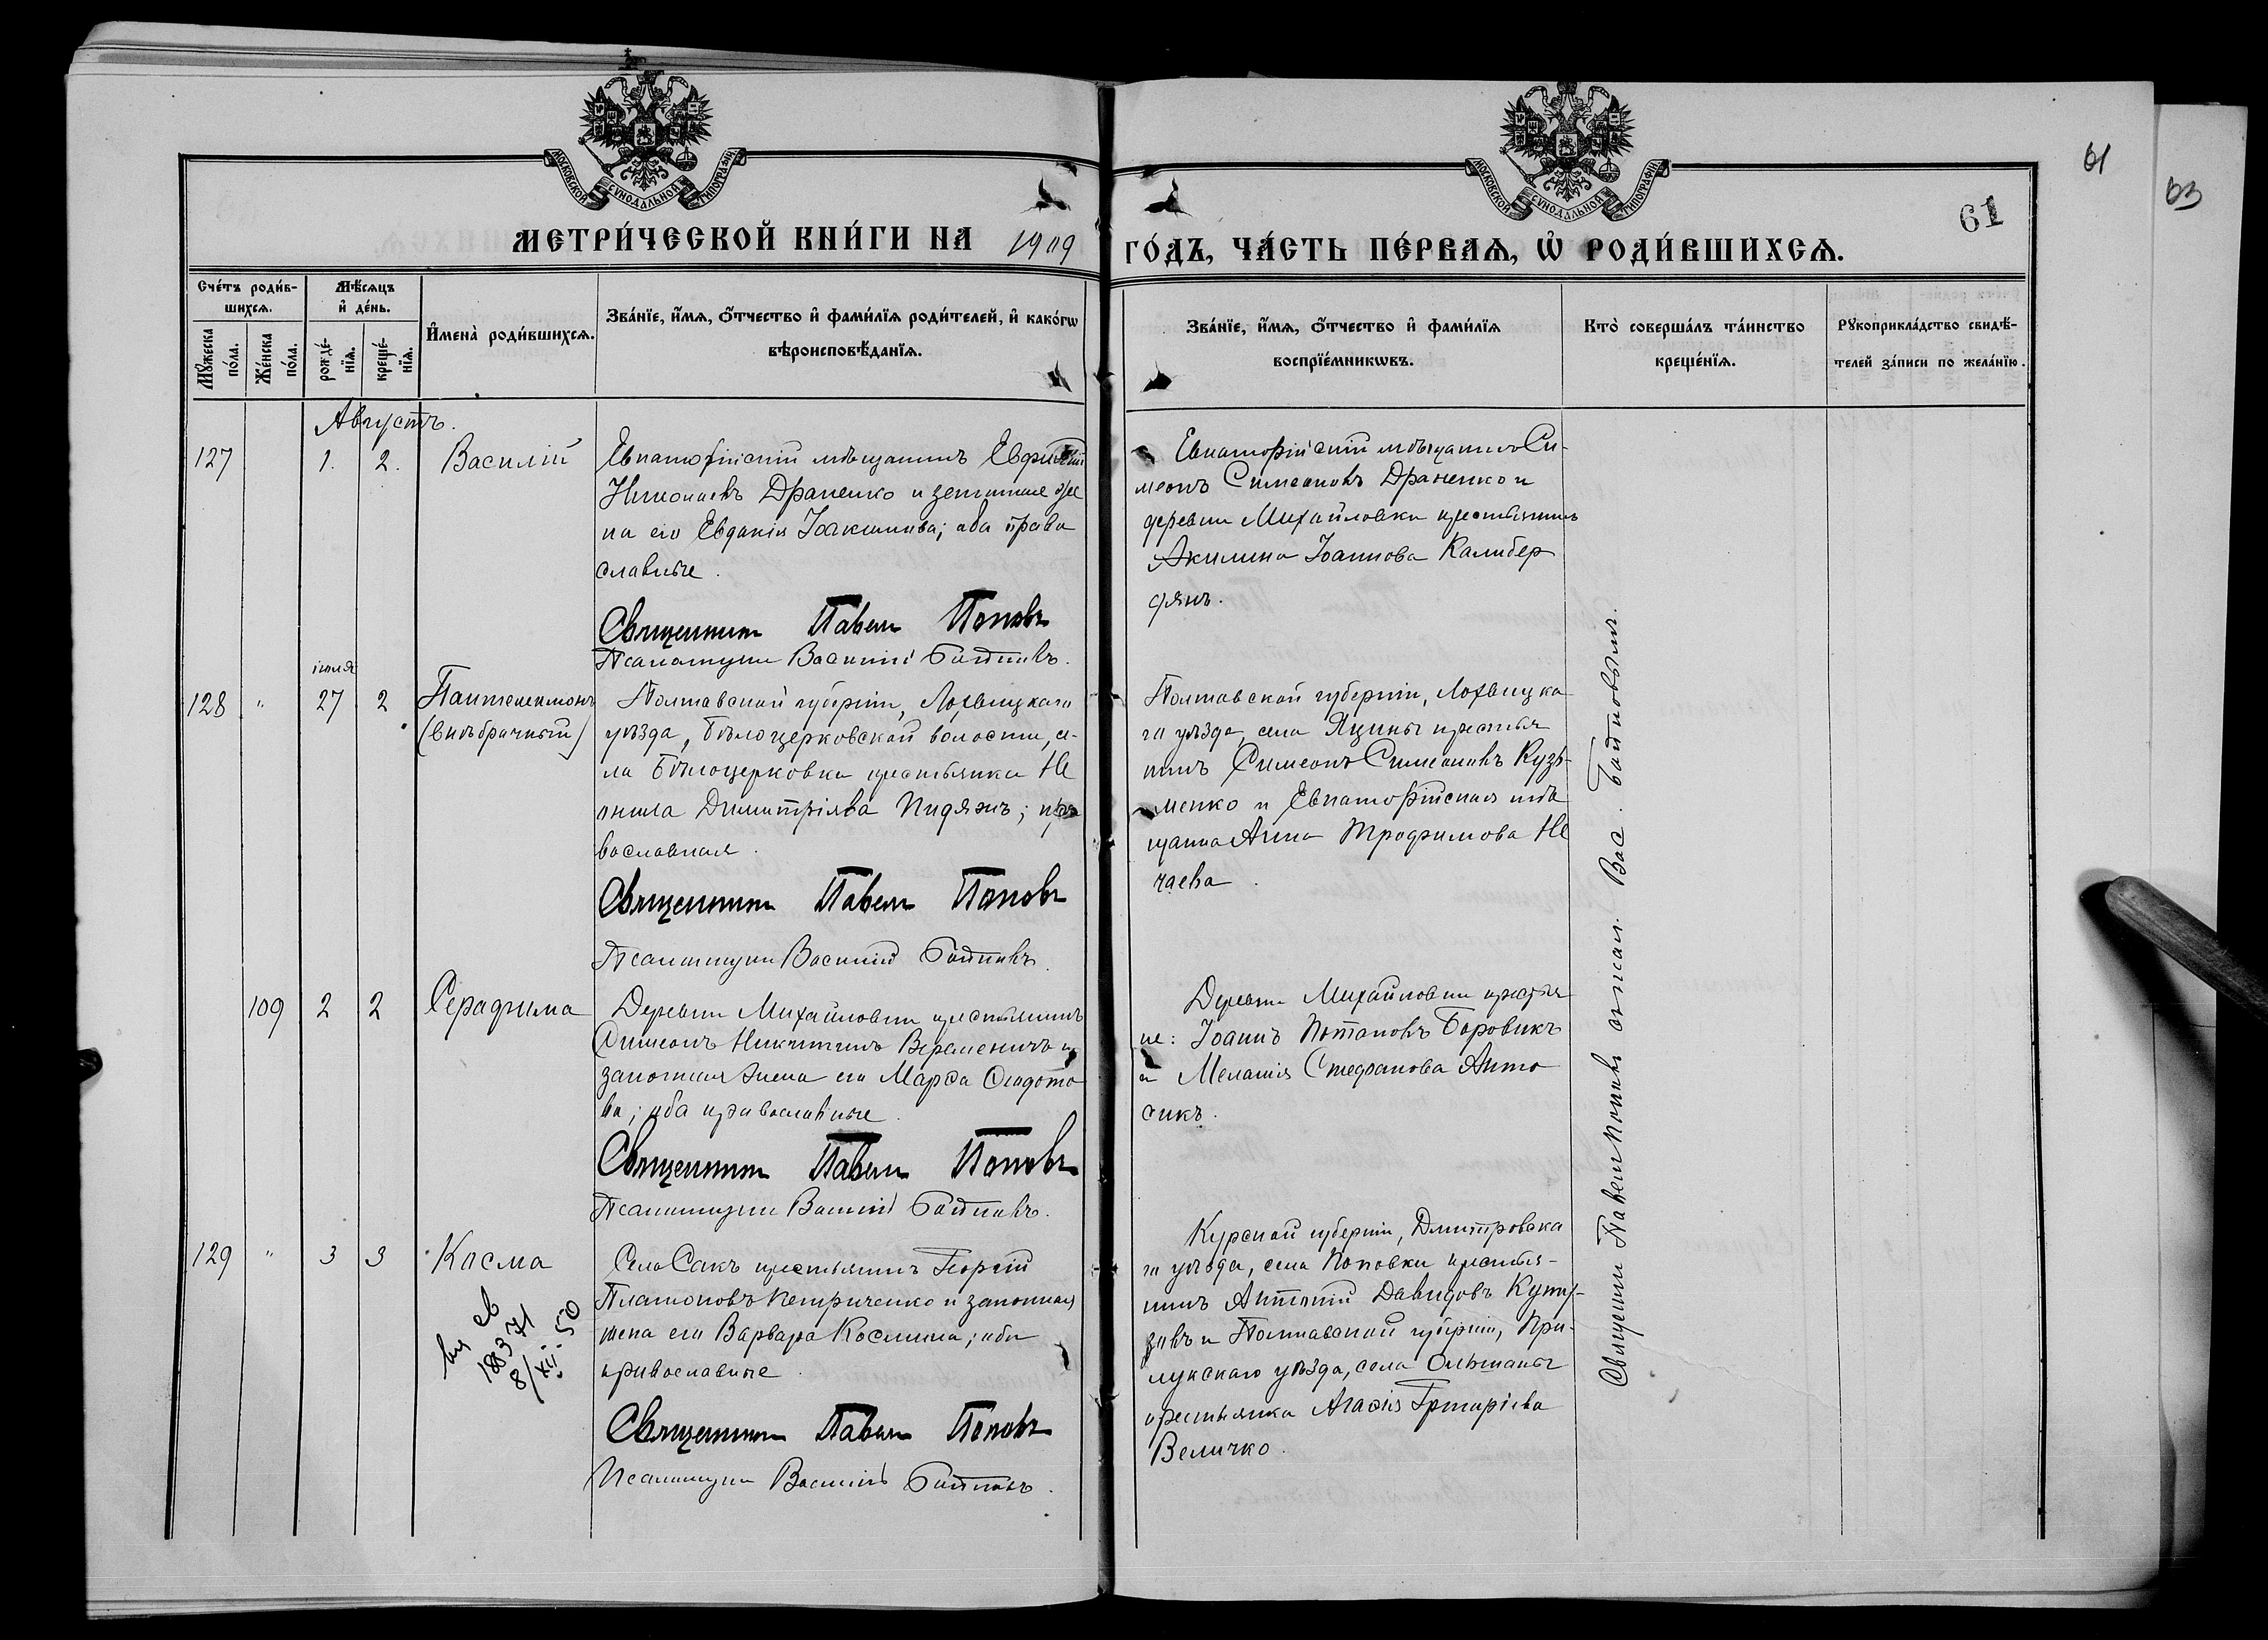 61
63
61
МОСКОВСКОЙ СУНОДАЛЬНОЙ ТИПОГРАФІИ
МОСКОВСКОЙ СУНОДАЛЬНОЙ ТИПОГРАФІИ
МЕТРИ́ЧЕСКОЙ КНИ́ГИ НА 1909 ГО́ДЪ, ЧА́СТЬ ПЕ́РВАѦ, Ѡ҆ РОДИ́ВШИХСѦ.
Сче́тъ роди́в-
шихсѧ.
Мѣ́сѧцъ
и҆ де́нь.
Мꙋ́жеска
по́ла.
Же́нска
по́ла.
рожде́-
нїѧ.
креще́-
нїѧ.
И҆мена̀ роди́вшихсѧ.
Зва́нїе, и҆́мѧ, ѻ҆́тчество и҆ фами́лїѧ роди́телей, и҆ како́гѡ
вѣроисповѣ́данїѧ.
Зва́нїе, и҆́мѧ, ѻ҆́тчество и҆ фами́лїѧ
воспрїе́мникѡвъ.
Кто̀ соверша́лъ та́инство
креще́нїѧ.
Рꙋкоприкла́дство свидѣ́-
телей за́писи по жела́нїю.
Августъ.
127 1. 2. Василій
Евпаторійскій мѣщанинъ Евфимій
Николаевъ Драненко и законная же
на его Евдокія Іоакимова; оба право
славные.
Священникъ Павелъ Поповъ
Псаломщикъ Василій
Евпаторійскій мѣщанинъ Си-
меонъ Симеоновъ Драненко и
деревни Михайловки крестьянка
Акилина Іоаннова Калибер
дянъ.
іюля
128 " 27 2 Пантелеимонъ
(внѣбрачный)
Полтавской губерніи, Лохвицкаго
уѣзда, Бѣлоцерковской волости, се-
ла Бѣлоцерковки крестьянка Не
онила Димитріева Пидяжъ; пра
вославная.
Священникъ Павелъ Поповъ
Псаломщикъ Василій
Полтавской губерніи, Лохвицка
го уѣзда, села Яцины крестья
нинъ Симеонъ Симеоновъ Кузь-
менко и Евпаторійская мѣ
щанка Анна Трофимова Не
чаева.
109 2 2 Серафима
Деревни Михайловки крестьянинъ
Симеонъ Никитинъ Веременичъ и
законная жена его Марѳа Ѳеодото
ва; оба православные.
Священникъ Павелъ Поповъ
Псаломщикъ Василій
Деревни Михайловки крестья
не: Іоаннъ Потаповъ Боровикъ
и Меланія Стефанова Анто
сикъ.
129 " 3 3 Косма
Села Сакъ крестьянинъ Георгій
Платоновъ Петриченко и законная
жена его Варвара Космина; оба
православные.
Священникъ Павелъ Поповъ
Псаломщикъ Василій
Курской губерніи, Дмитровска
го уѣзда, села Поповки крестья-
нинъ Антоній Давидовъ Куту-
зовъ и Полтавской губерніи, При-
лукскаго уѣзда, села Ольшаны
крестьянка Агаѳія Григоріева
Величко.
св
18371
8/XII-50
Священникъ Павелъ Поповъ съ псал. Вас.